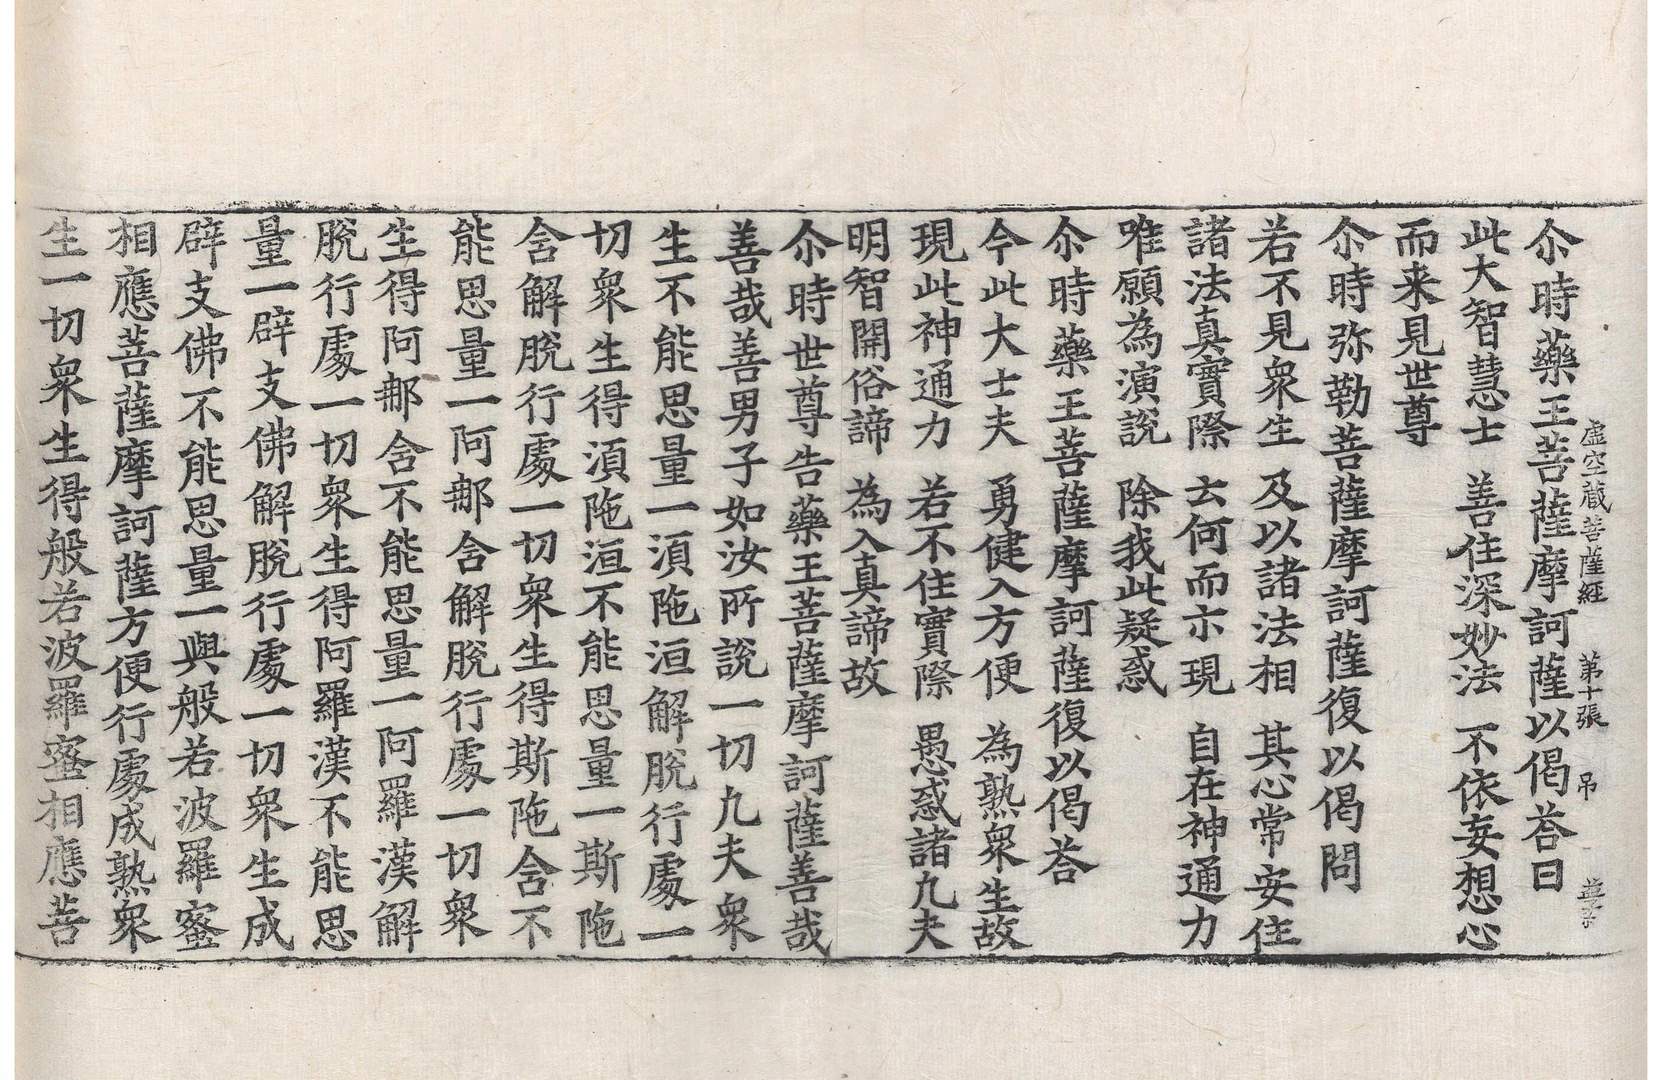 虛空藏菩薩經　第十張　吊
尒時藥王菩薩摩訶薩以偈荅曰
此大智慧士　善住深妙法　不依妄想心
而来見世尊
尒時弥勒菩薩摩訶薩復以偈問
若不見衆生　及以諸法相　其心常安住
諸法真實際　云何而示現　自在神通力
唯願為演說　除我此疑惑
尒時藥王菩薩摩訶薩復以偈荅
今此大士夫　勇健入方便　為熟衆生故
現此神通力　若不住實際　愚惑諸凡夫
明智開俗諦　為入真諦故
尒時世尊告藥王菩薩摩訶薩善哉
善哉善男子如汝所說一切凡夫衆
生不能思量一須陁洹解脫行處一
切衆生得須陁洹不能思量一斯陁
含解脫行處一切衆生得斯陁含不
能思量一阿那含解脫行處一切衆
生得阿那含不能思量一阿羅漢解
脫行處一切衆生得阿羅漢不能思
量一辟支佛解脫行處一切衆生成
辟支佛不能思量一與般若波羅蜜
相應菩薩摩訶薩方便行處成熟衆
生一切衆生得般若波羅蜜相應菩